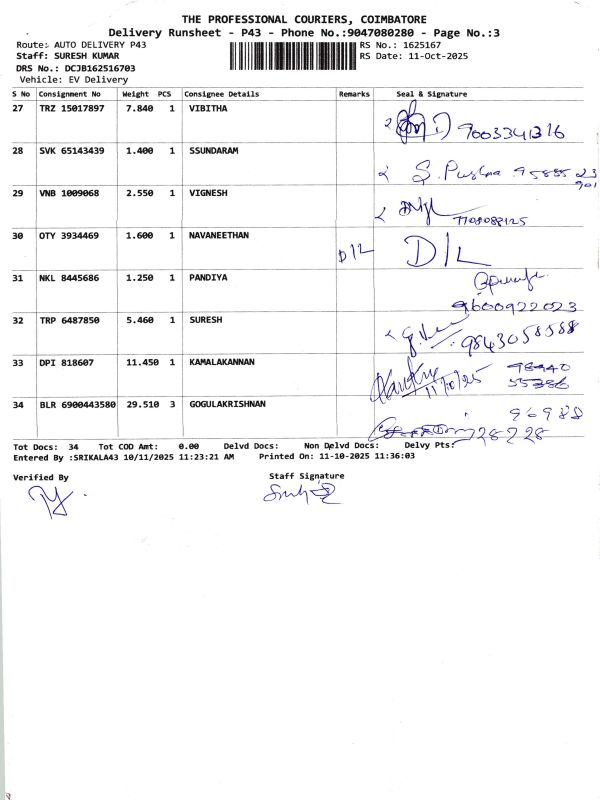 THE PROFESSIONAL COURIERS, COIMBATORE
Delivery Runsheet - P43 - Phone No.:9047080280 - Page No.:3
Route: AUTO DELIVERY P43 RS No.: 1625167
Staff: SURESH KUMAR RS Date: 11-Oct-2025
DRS No.: DCJB162516703
Vehicle: EV Delivery
S No Consignment No Weight PCS Consignee Details Remarks Seal & Signature
27 TRZ 15017897 7.840 1 VIBITHA
9003341316
28 SVK 65143439 1.400 1 SSUNDARAM
S. Pushpa
29 VNB 1009068 2.550 1 VIGNESH
30 OTY 3934469 1.600 1 NAVANEETHAN D/L D/L
31 NKL 8445686 1.250 1 PANDIYA
9600922023
32 TRP 6487850 5.460 1 SURESH
9843058588
33 DPI 818607 11.450 1 KAMALAKANNAN
11/10/25
34 BLR 6900443580 29.510 3 GOGULAKRISHNAN 96988
728728
Tot Docs: 34 Tot COD Amt: 0.00 Delvd Docs: Non Delvd Docs: Delvy Pts:
Entered By :SRIKALA43 10/11/2025 11:23:21 AM Printed On: 11-10-2025 11:36:03
Verified By Staff Signature